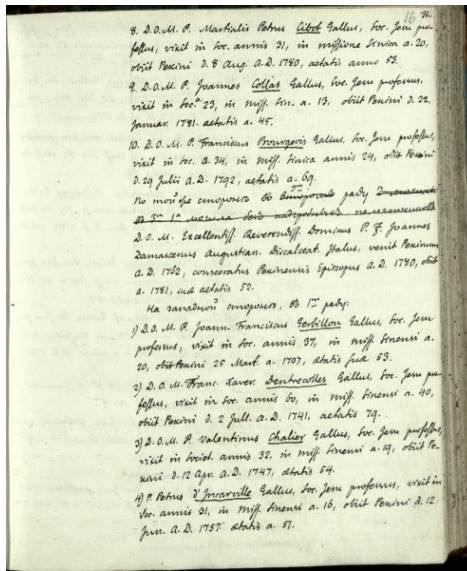 16 31.
8. D.O.M. P. Martialis Petrus Cibot Gallus, Soc. Jem pro-
fessus, vixit in soc. annis 31, in missione Sinica a. 20,
obiit Pekini d. 8 Aug. A.D. 1780, aetatis anno 53.
9. D.O.M. P. Joannes Collas Gallus, Soc. Jem professus,
vixit in Soc. 23, in miss. Sin. a. 13, obiit Pekini d. 22
Januar. 1781. aetatis a. 45.
10. D.O.M. P. Franciscus Bourgeois Gallus, Soc. Jem professus,
vixit in soc. a. 34, in miss. Sinica annis 24, obiit Pekini
d. 29 Julii A.D. 1792, aetatis a. 69.
По той же стороне во ряду
D.O.M. Excellentiss. Reverendiss. Dominus P. F. Joannes
Damascenus Augustian. Discalceat. Italus, venit Pekinum
A.D. 1762, consecratus Pekinensis Episcopus A.D. 1780, obiit
a. 1781, suae aetatis 52.
На западной стороне, въ 1мъ ряду:
1) D.O.M. P. Joann. Franciscus Gerbillon Gallus, Soc. Jem
professus, vixit in soc. annis 37, in miss. Sinensi a.
20, obiit Pekini 25 Mart. a. 1707, aetatis suae 53.
2) D.O.M. Franc. Xaver. Dentrecolles Gallus, Soc. Jem pro-
fessus, vixit in Soc. annis 60, in miss. Sinensi a. 40,
obiit Pekini d. 2 Jull. a. D. 1741, aetatis 79.
3) D.O.M. P. Valentinus Chalier Gallus, Soc. Jem professus,
vixit in societ. annis 32, in miss. Sinensi a. 19, obiit Pe-
kini d. 12 Apr. A.D. 1747, aetatis 54.
4) P. Petrus d'Incarville Gallus, Soc. Jem professus, vixit in
Soc. annis 31, in Miss. Sinensi a. 16, obiit Pekini d. 12
Jun. A.D. 1757. aetatis a. 51.